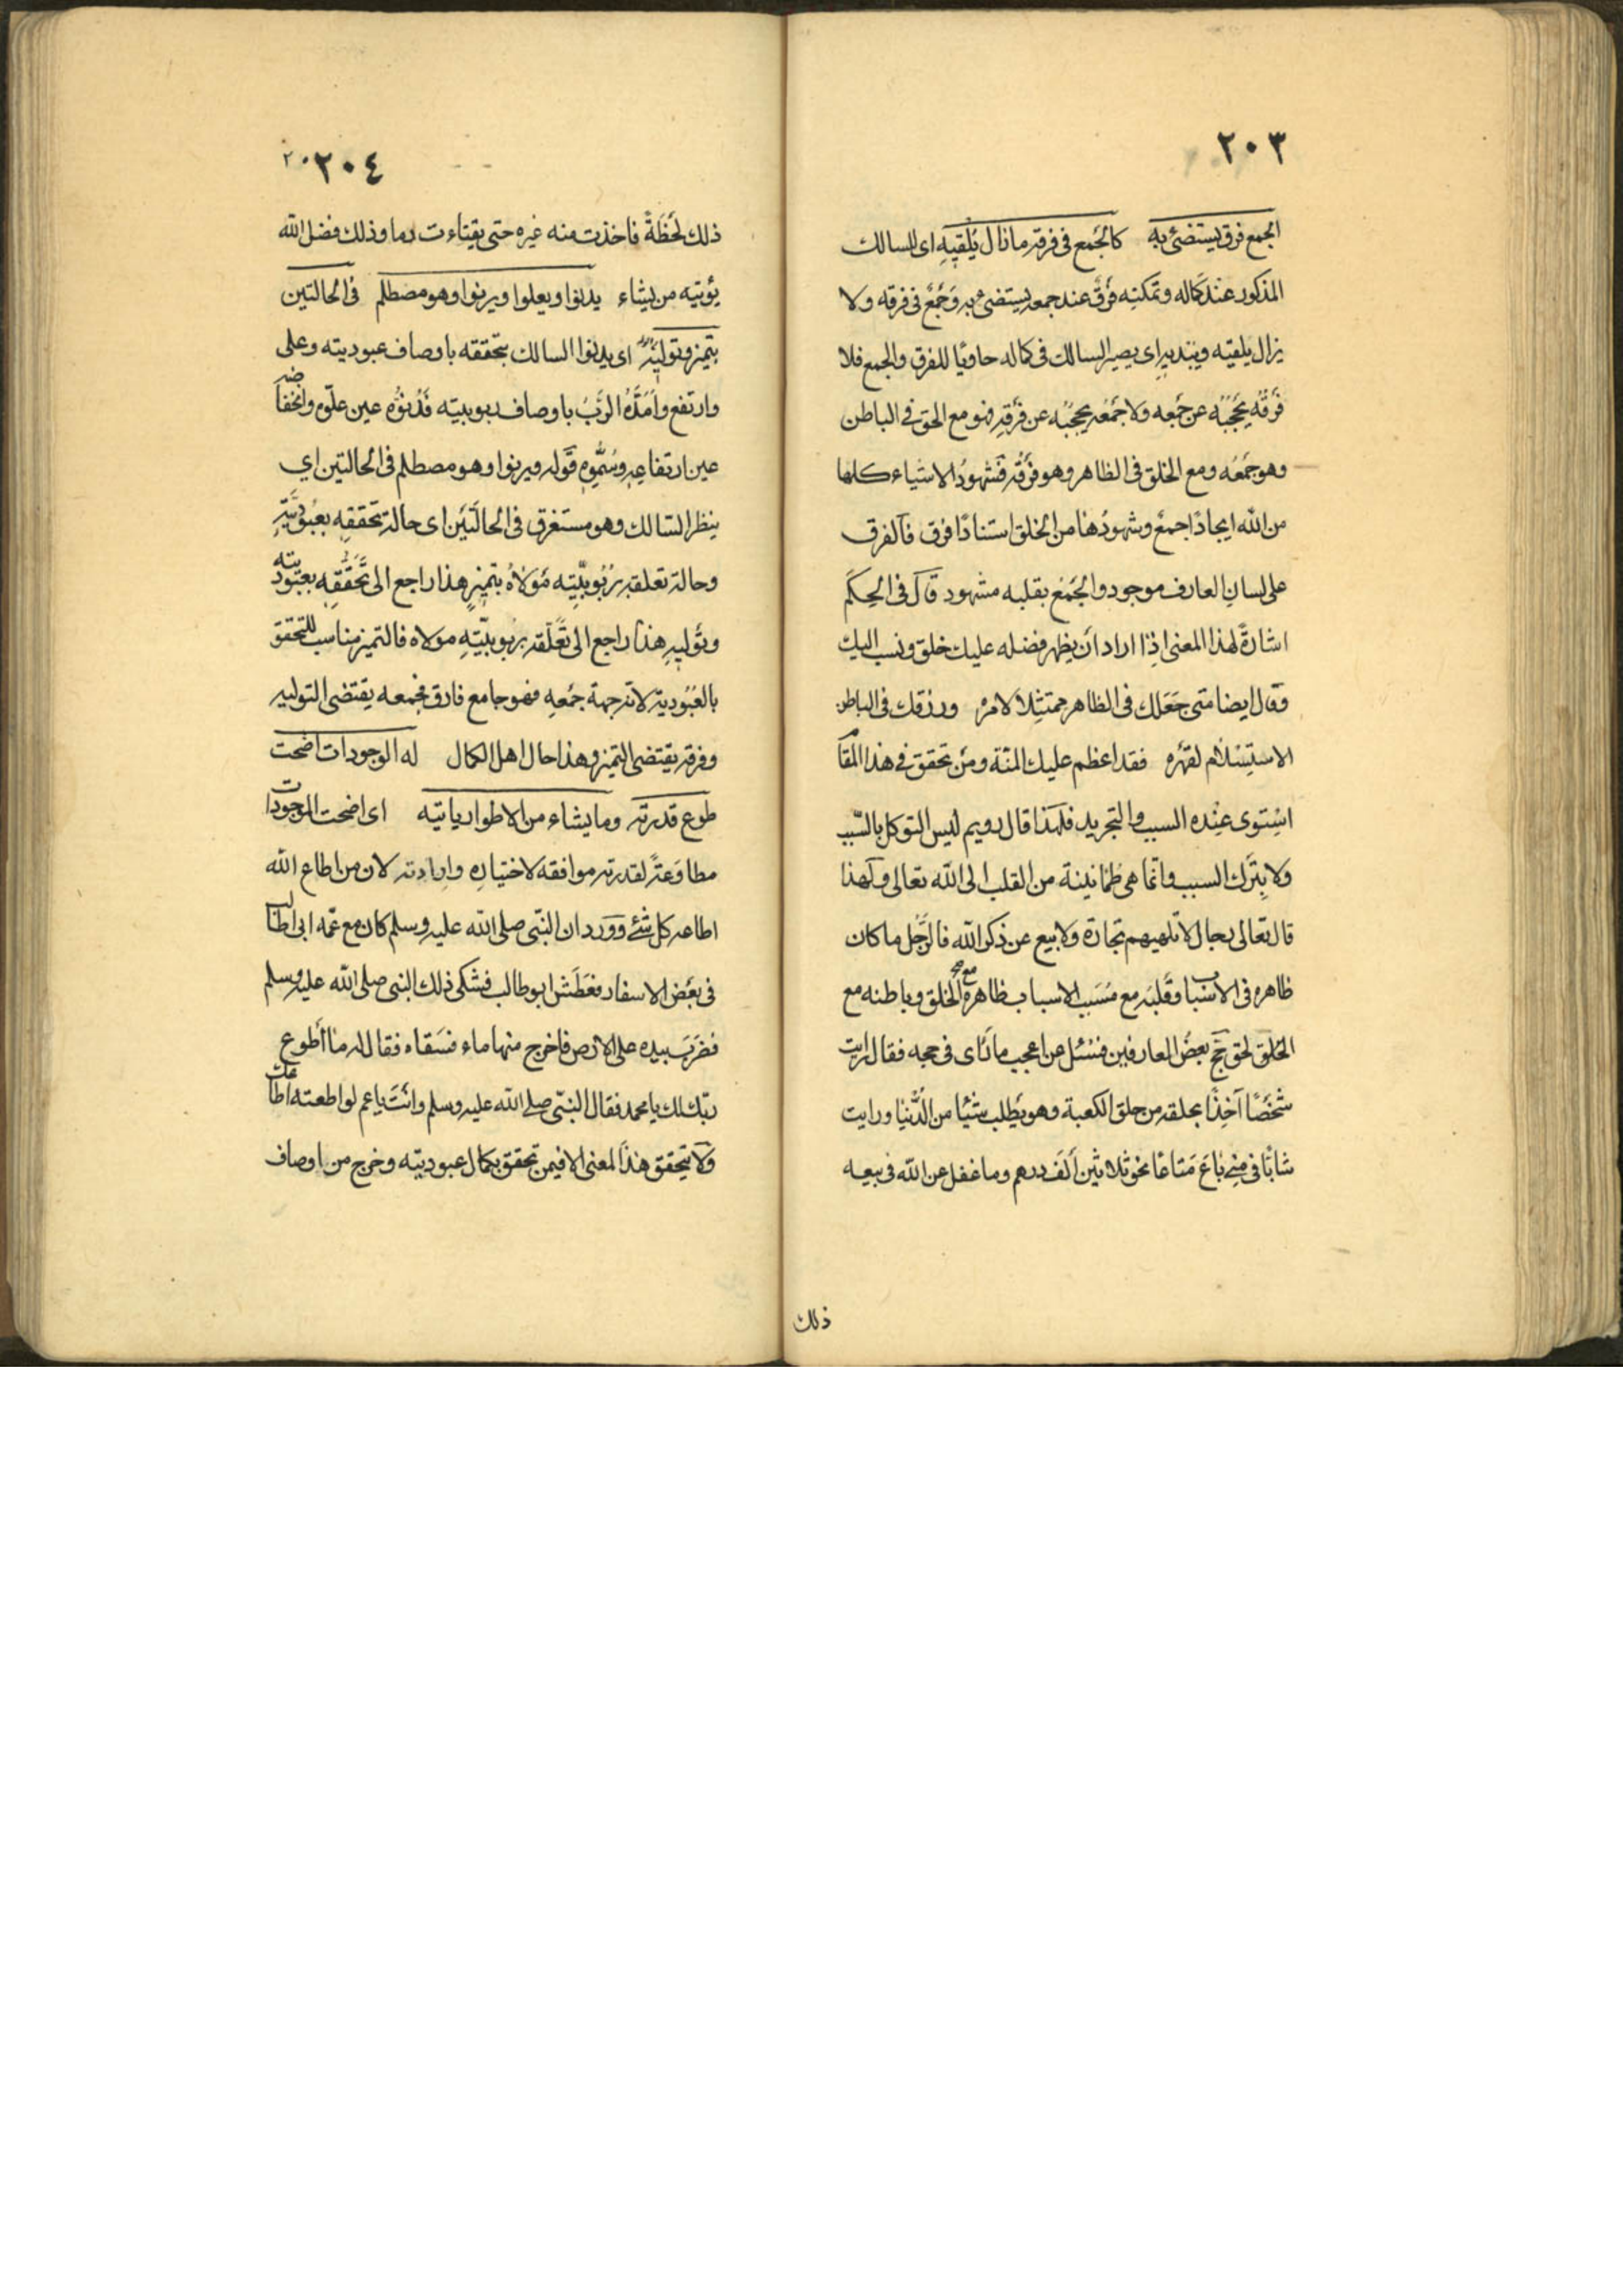 ٢٠٣
الجمع فرق يستضئ به كالجمع فى فرقه مازال يُلقيه اى للسالك
المذكور عند كماله وتمكنه فَرقٌ عند جمعه يستضىء به وَجَمْعٌ فى فرقه ولا
يزال يلقيه ويبديه اى يصير السالك فى كماله حاويًا للفرق والجمع فلا
فَرْقُه يَحْجُبُه عن جَمْعِه ولا جَمْعُه يحجبُه عن فَرْقِه فهو مع الحق فى الباطن
وهو جَمْعُه ومع الخلق فى الظاهر وهو فَرْقُه فشهودُ الاشياء كلها
من الله ايجادًا جمعٌ وشهودُها من الخلق استنادًا فرق فالفرق
على لسان العارف موجود والجَمْعُ بقلبه مشهود قال فى الحِكَم
اشارةً لهذا المعنى اذا اراد أن يظهر فضله عليك خلق ونسب اليك
وقال ايضا متى جَعَلك فى الظاهر ممتثِلًا لامره ورزقك فى الباطن
الاستِسْلام لقهْرِه فقد اعظم عليك المنّة ومَن تحقق فى هذا المقام
اسْتوى عِنْده السبب والتجريد فلهذا قال رويم ليس التوكل بالسّبب
ولا بِتَرك السبب وانّما هى طُمَأنينة من القلب الى الله تعالى ولهذا
قال تعالى رجال لا تلهيهم تجارة ولا بيع عن ذكر الله فالرَّجُل ما كان
ظاهره فى الاسْبَاب وقَلبُه مع مُسَبِب الاسباب ظاهره مع الخلق وباطنه مع
الخلق لحق حَجّ بعضُ العارفين فسُئل عن اعجب ما رَأى فى حجه فقال رايت
شخْصًا آخِذًا بحلقه من حلق الكعبة وهو يَطلب شَيْأ من الدُّنيا ورايت
شابًّا فى مِنى باعَ مَتاعًا نحو ثلاثين أَلَف درهم وما غفل عن الله فى بيعه
ذلك
٢٠٤
ذلك لَحْظَةً فاخذت منه غيره حتى دما وذلك فضل الله
يؤتيه من يشاء يدنوا ويعلوا ويرنوا وهو مصطلم فى الحالتين
بتميز وتوليه اى يدنوا السالك بتحققه باوصاف عبوديته وعلى
وارتفع وأمَدَّهُ الرَّبُ باوصاف ربوبيته فَدُنُوُّه عين علوّه وانخفاضه
عين ارتفاعِه وسُمُّوِه قوله ويرنوا وهو مصطلم فى الحالتين اى
ينظر السّالك وهو مستغرق فى الحالَتَين اى حالة تحققه بعُبُوديَّته
وحالة تعلقه برُبُوبيَّتِه مَوْلَاهُ بتميز هذا راجع الى تَحَقُّقِه بعبوديته
وتَوْليهِ هذا راجع الى تَعَلّقه برُبوبيّتِه مولاه فالتميز مناسب للتحقق
بالعُبُودية لانه جهة جَمْعِه فهو جامع فارق فجمعه يقتضى التوليه
وفرقه يقتضى التميز وهذا حال اهل الكمال له الوجودات اضحت
طوع قدرته وما يشاء من الاطوار ياتيه اى اضحت الموجودات
مطاوَعَةً لقدرته موافقه لاختياره وارادته لان من اطاع الله
اطاعه كل شئ وَوَرَدَ ان النّبّى صلى الله عليه وسلم كان مع عمّه ابى طالب
فى بعض الاسفار فعَطَش ابو طالب فشكى ذلك النبى صلى الله عليه وسلم
فضَرَبَ بيده على الارض فاخرج منها ماء فسَقاه فقال له ما أَطوع
ربّك لك يا محمد فقال النبّى صلى الله عليه وسلم وانْتَ يا عم لو اطعته اطاعك
ولا يتحقق هذا المعنى الا فيمن تحقق بكمال عبوديّته وخرج من اوصاف